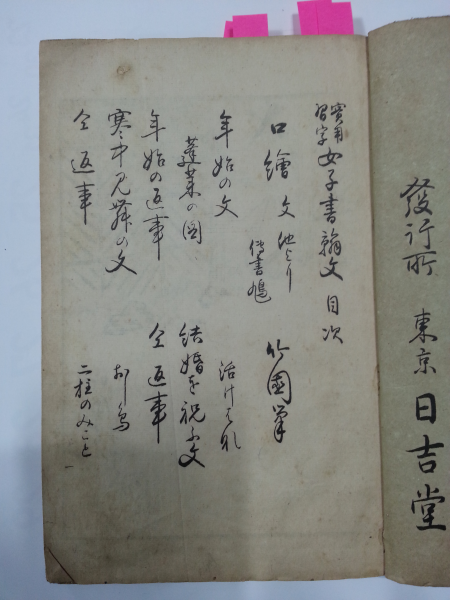 發行所 東京 日吉堂
實用習字 女子書翰文 目次
口繪 文
傳書鳩
竹園筆
年始の文
蓬萊の圖
年始の返事
寒中見舞の文
仝 返事
活け花
結婚を祝ふ文
仝 返事
二柱のみこと